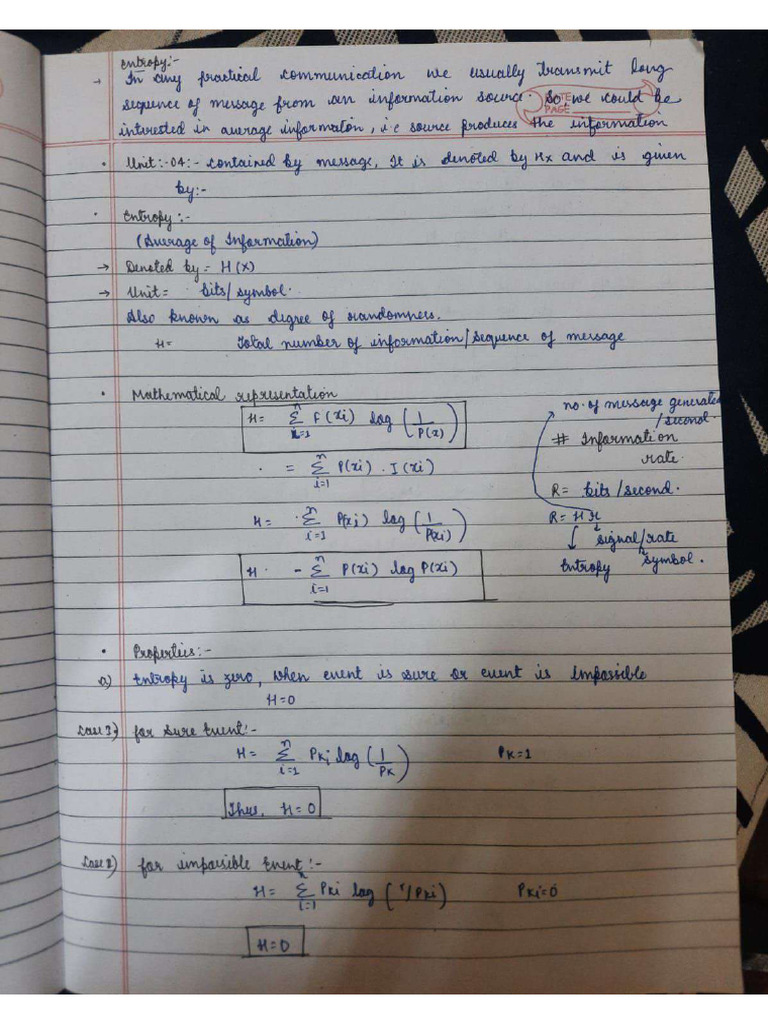 Entropy:-
→ In any practical communication we usually transmit long
sequence of message from an information source. So, we could be
interested in average informaton, i.e source produces the information
• Unit:-04:- contained by message, It is denoted by Hx and is given
by:-
• Entropy:-
(Average of Information)
→ Denoted by = H(x)
→ Unit = bits/symbol.
Also known as degree of randomness.
H= Total number of information/Sequence of message
• Mathematical representation
H= n Σ k=1 F(xi) log (1/P(x))
= n Σ i=1 P(xi) . I(xi)
H= n Σ i=1 P(xi) log (1/P(xi))
H - n Σ i=1 P(xi) log P(xi)
no. of message generated
/second.
# Information
rate.
R= bits/second.
R= H r
signal/rate
Entropy symbol.
• Properties:-
a) Entropy is zero, when event is sure or event is Impossible
H=0
Case 1) for sure Event:-
H= n Σ i=1 PKi log (1/PK) PK=1
Thus, H=0
Case 2) for impossible Event:-
H= n Σ i=1 PKi log (1/PKi) PKi=0
H=0